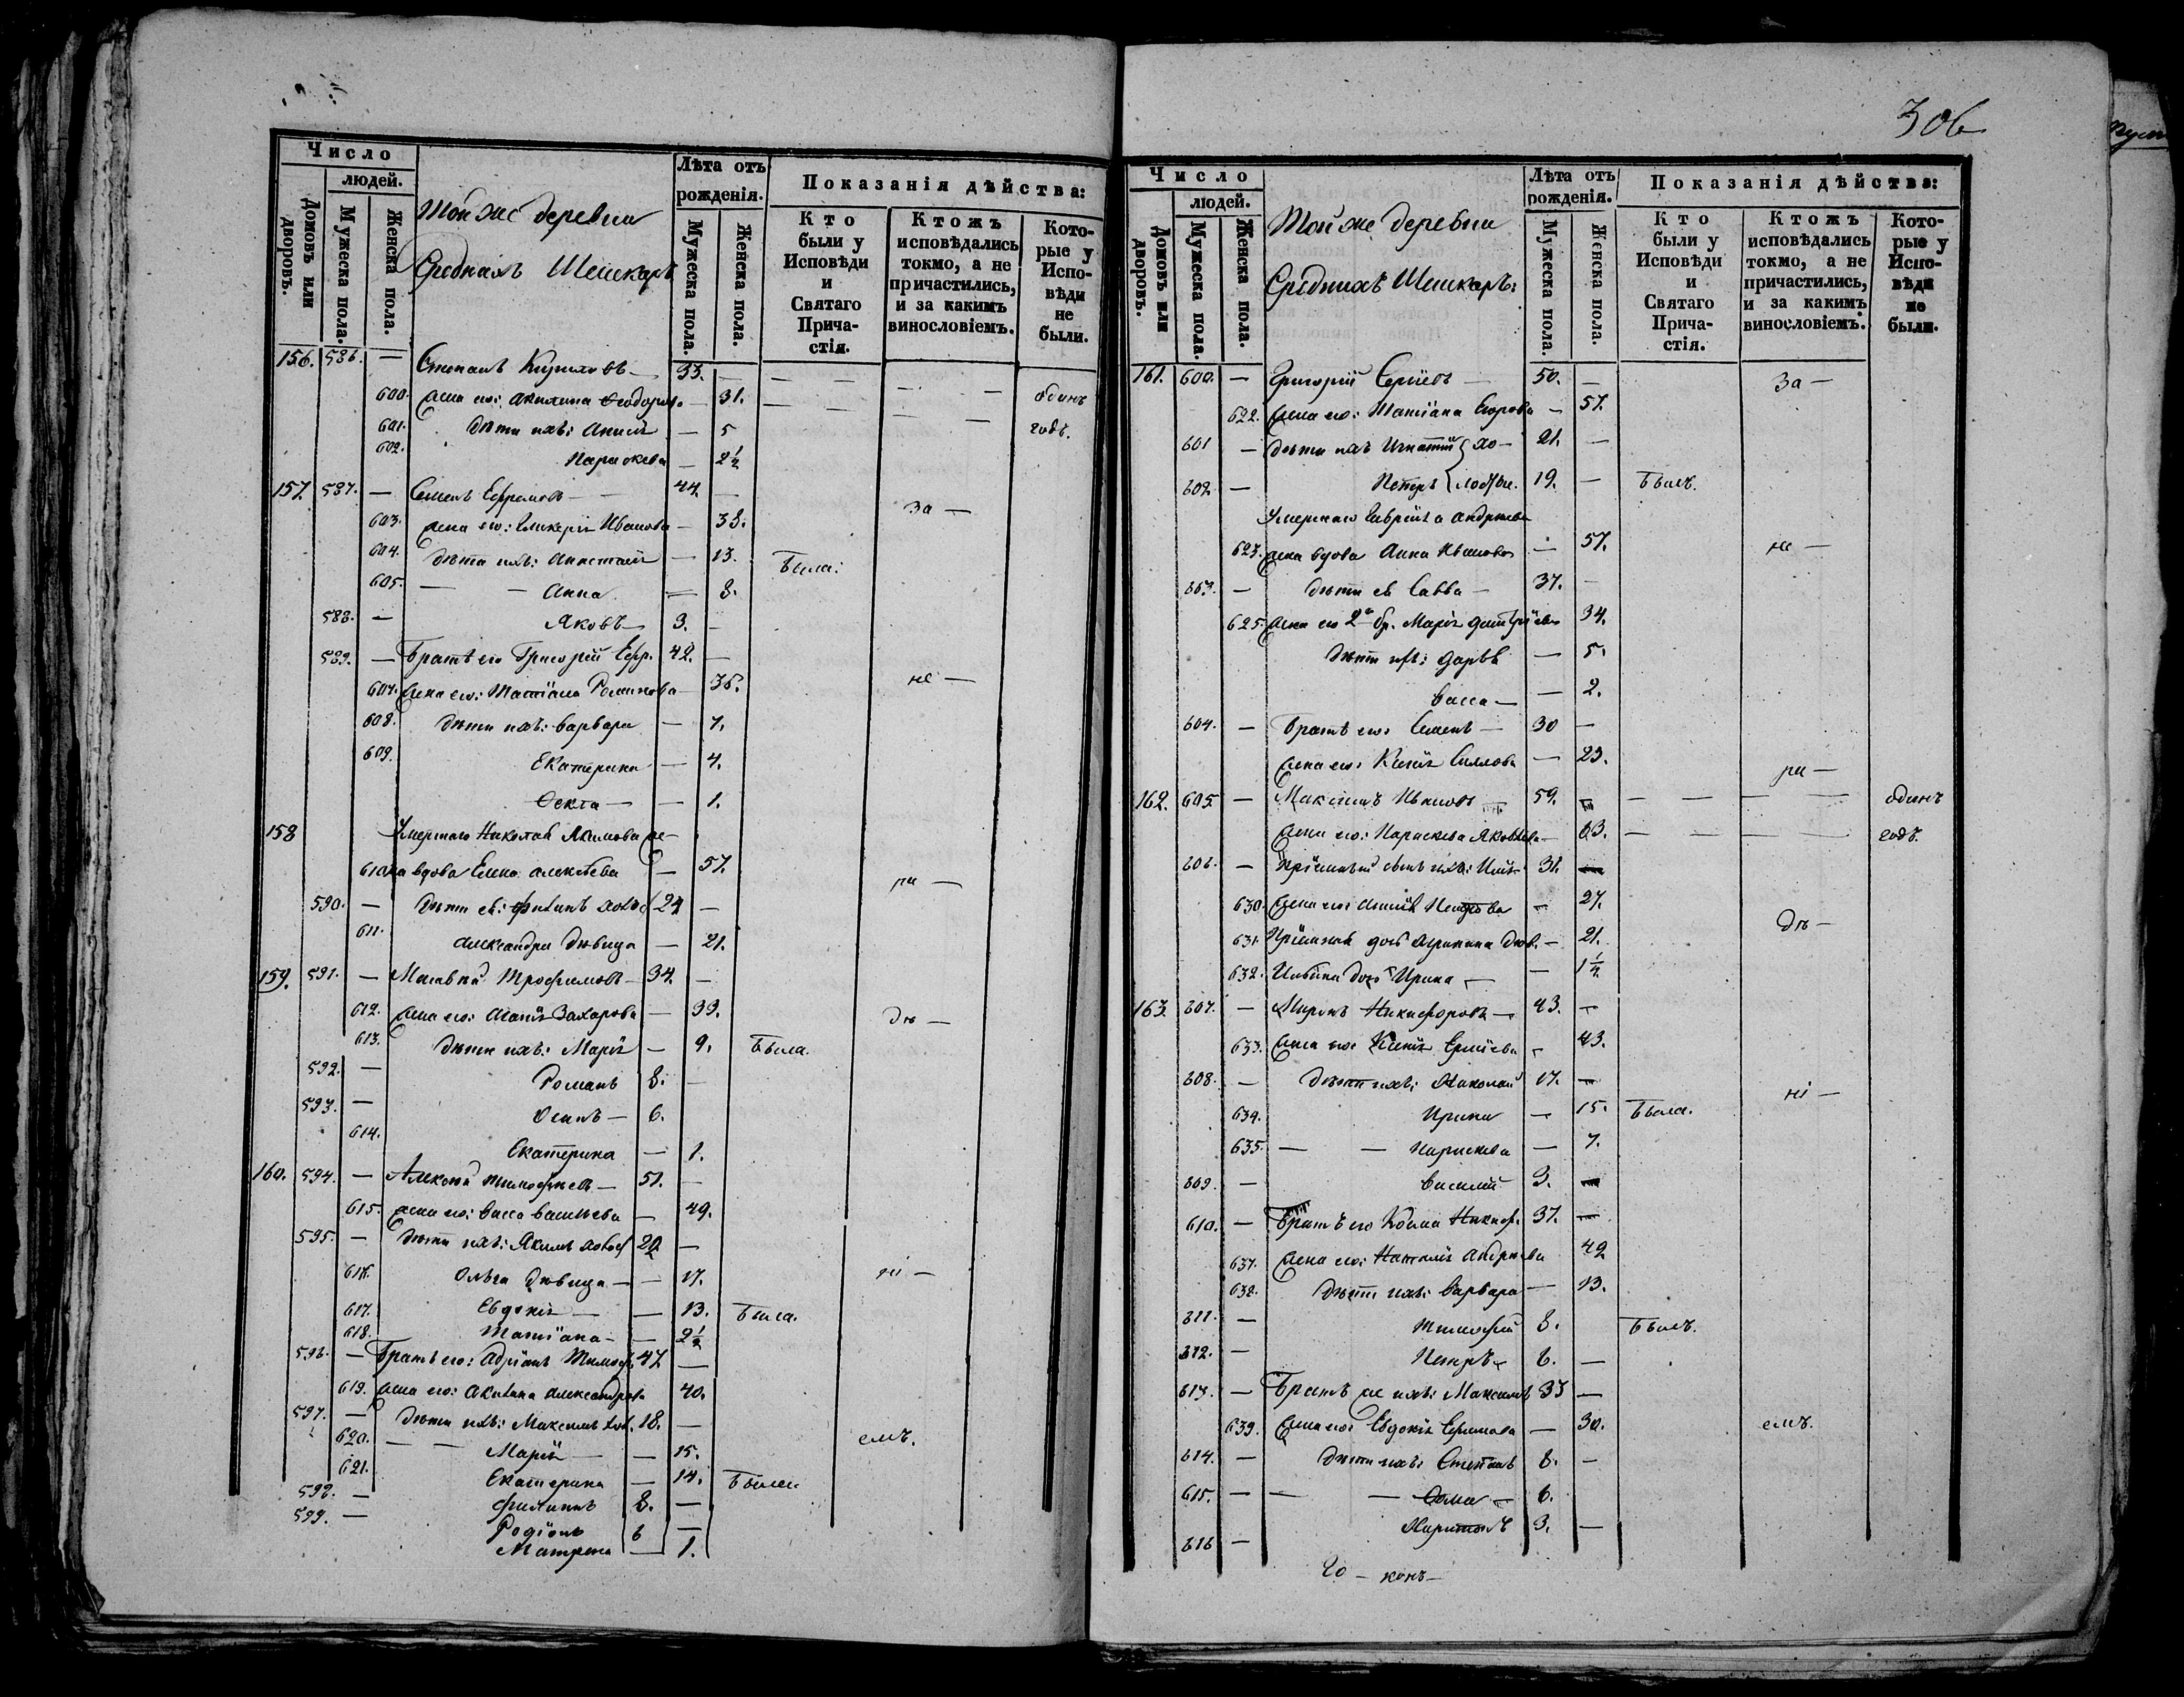 Число
людей.
Домовъ или дворовъ.
Мужеска пола.
Женска пола.
Той же деревни
Среднихъ Шешкаръ
Лѣта отъ рожденія.
Мужеска пола.
Женска пола.
Показанія дѣйства:
Кто были у Исповѣди и Святаго Причастія.
Ктожъ исповѣдались токмо, а не причастились, и за какимъ винословіемъ.
Которые у Исповѣди не были.
156. 586. — Степанъ Кириловъ — 33. —
600. жена его: Акилина Ѳеодоров. — 31. одинъ
601. дѣти ихъ: — 5 годъ.
602. Параскева — 2½
157. 587. — Семенъ Ефремовъ — 44. —
603. жена его: Гликерія Иванова — 38. за —
604. дѣти ихъ: — 13. была:
605. — — Анна — 8.
588. — Яковъ — 3. —
589. — Братъ его Григорій Ефр. 42. —
607. жена его: Татіана Романова — 36. не —
608. дѣти ихъ: Варвара — 7.
609. Екатерина — 4.
Ѳекла — — 1.
158 Умершаго Николая Якимова же-
610. на вдова Елена Алексѣева — 57. ра —
590. — дѣти ея: холос 24 —
611. Александра дѣвица — 21.
159. 591. — Трофимовъ — 34. —
612. жена его: Агаѳія Захарова — 33. дѣ —
613. дѣти ихъ: Марія — 9. была.
592. — Романъ 8. —
593. — Осипъ — 6.
614. Екатерина — 1.
160. 594. — Алексѣй Тимофеевъ — 51. —
615. жена его: Васса Васильева — 49.
595. — дѣти ихъ: Якимъ холос 20 —
616. Ольга дѣвица — — 17. ні —
617. Евдокія — — 13. была.
618. Татіана — — 2½
596. — Братъ его: Адріанъ Тимоф. 47 —
619. жена его: Акилина Александрова 40.
597. — дѣти ихъ: Максимъ хол. 18. —
620. — — Марія — — 15. емъ.
621. Екатерина — 14. были
598. — Филиппъ 8. —
599. — Родіонъ 6 —
Матрена — 1.
306
Число
людей.
Домовъ или дворовъ.
Мужеска пола.
Женска пола.
Той же деревни
Среднихъ Шешкаръ:
Лѣта отъ рожденія.
Мужеска пола.
Женска пола.
Показанія дѣйства:
Кто были у Исповѣди и Святаго Причастія.
Ктожъ исповѣдались токмо, а не причастились, и за какимъ винословіемъ.
Которые у Исповѣди не были.
161. 600. — Григорій Сергіевъ — 50. — за —
622. жена его: Татіана Егорова — 57.
601 — дѣти ихъ Игнатій хо- 21. —
602. — Петръ лостые. 19. — былъ.
Умершаго Гавріила Андреева
623. жена вдова Анна Иванова — 57. не —
603. — дѣти ея Савва — 37. —
625. жена его 2 бр. Марія Дмитріева 34.
дѣти ихъ: Дарья — 5.
Васса — — 2.
604. — Братъ его: Семенъ — 30 —
жена его: Ксенія Силлова — 23. ра —
162. 605. — Максимъ Ивановъ — 59. — — — — одинъ
жена его: Параскева Яковлева — 63. — — — годъ.
606. — Пріемный сынъ ихъ: Илія 31. —
630. жена его Петрова — 27. дѣ —
631. Пріемная дочь Агрипина дѣв. — 21.
632. Ильина дочь Ирина — — 1¼
163. 607. — Миронъ Никифоровъ — 43. —
633. жена его: Ксенія Ермиева — 43.
608. — дѣти ихъ: Николай 17. — ні —
634. Ирина — 15. была.
635. — — Параскева — 7.
609. — Василій 3. —
610. — Братъ его Козма Никиф. 37. —
637. жена его: Наталія Андреева 42
638. дѣти ихъ: Варвара — 13.
611. — Тимофей 8. былъ.
612. — Петръ — 6. —
613. — Братъ же ихъ: Максимъ 33 —
639. жена его: Евдокія Ермилова — 30. емъ.
614. — дѣти ихъ: Степанъ 8. —
615. — — — Ѳома — 6.
616 — Харитонъ 3. —
20 — конъ —